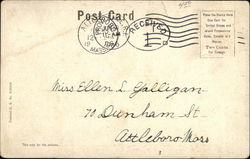 Post Card
RECEIVED
1
Place the Stamp Here
One Cent for
United States and
Island Possessions
Cuba, Canada and
Mexico
Two Cents
for Foreign
Miss Ellen L. Galligan
70 Dunham St
Attleboro Mass
This side for the address.